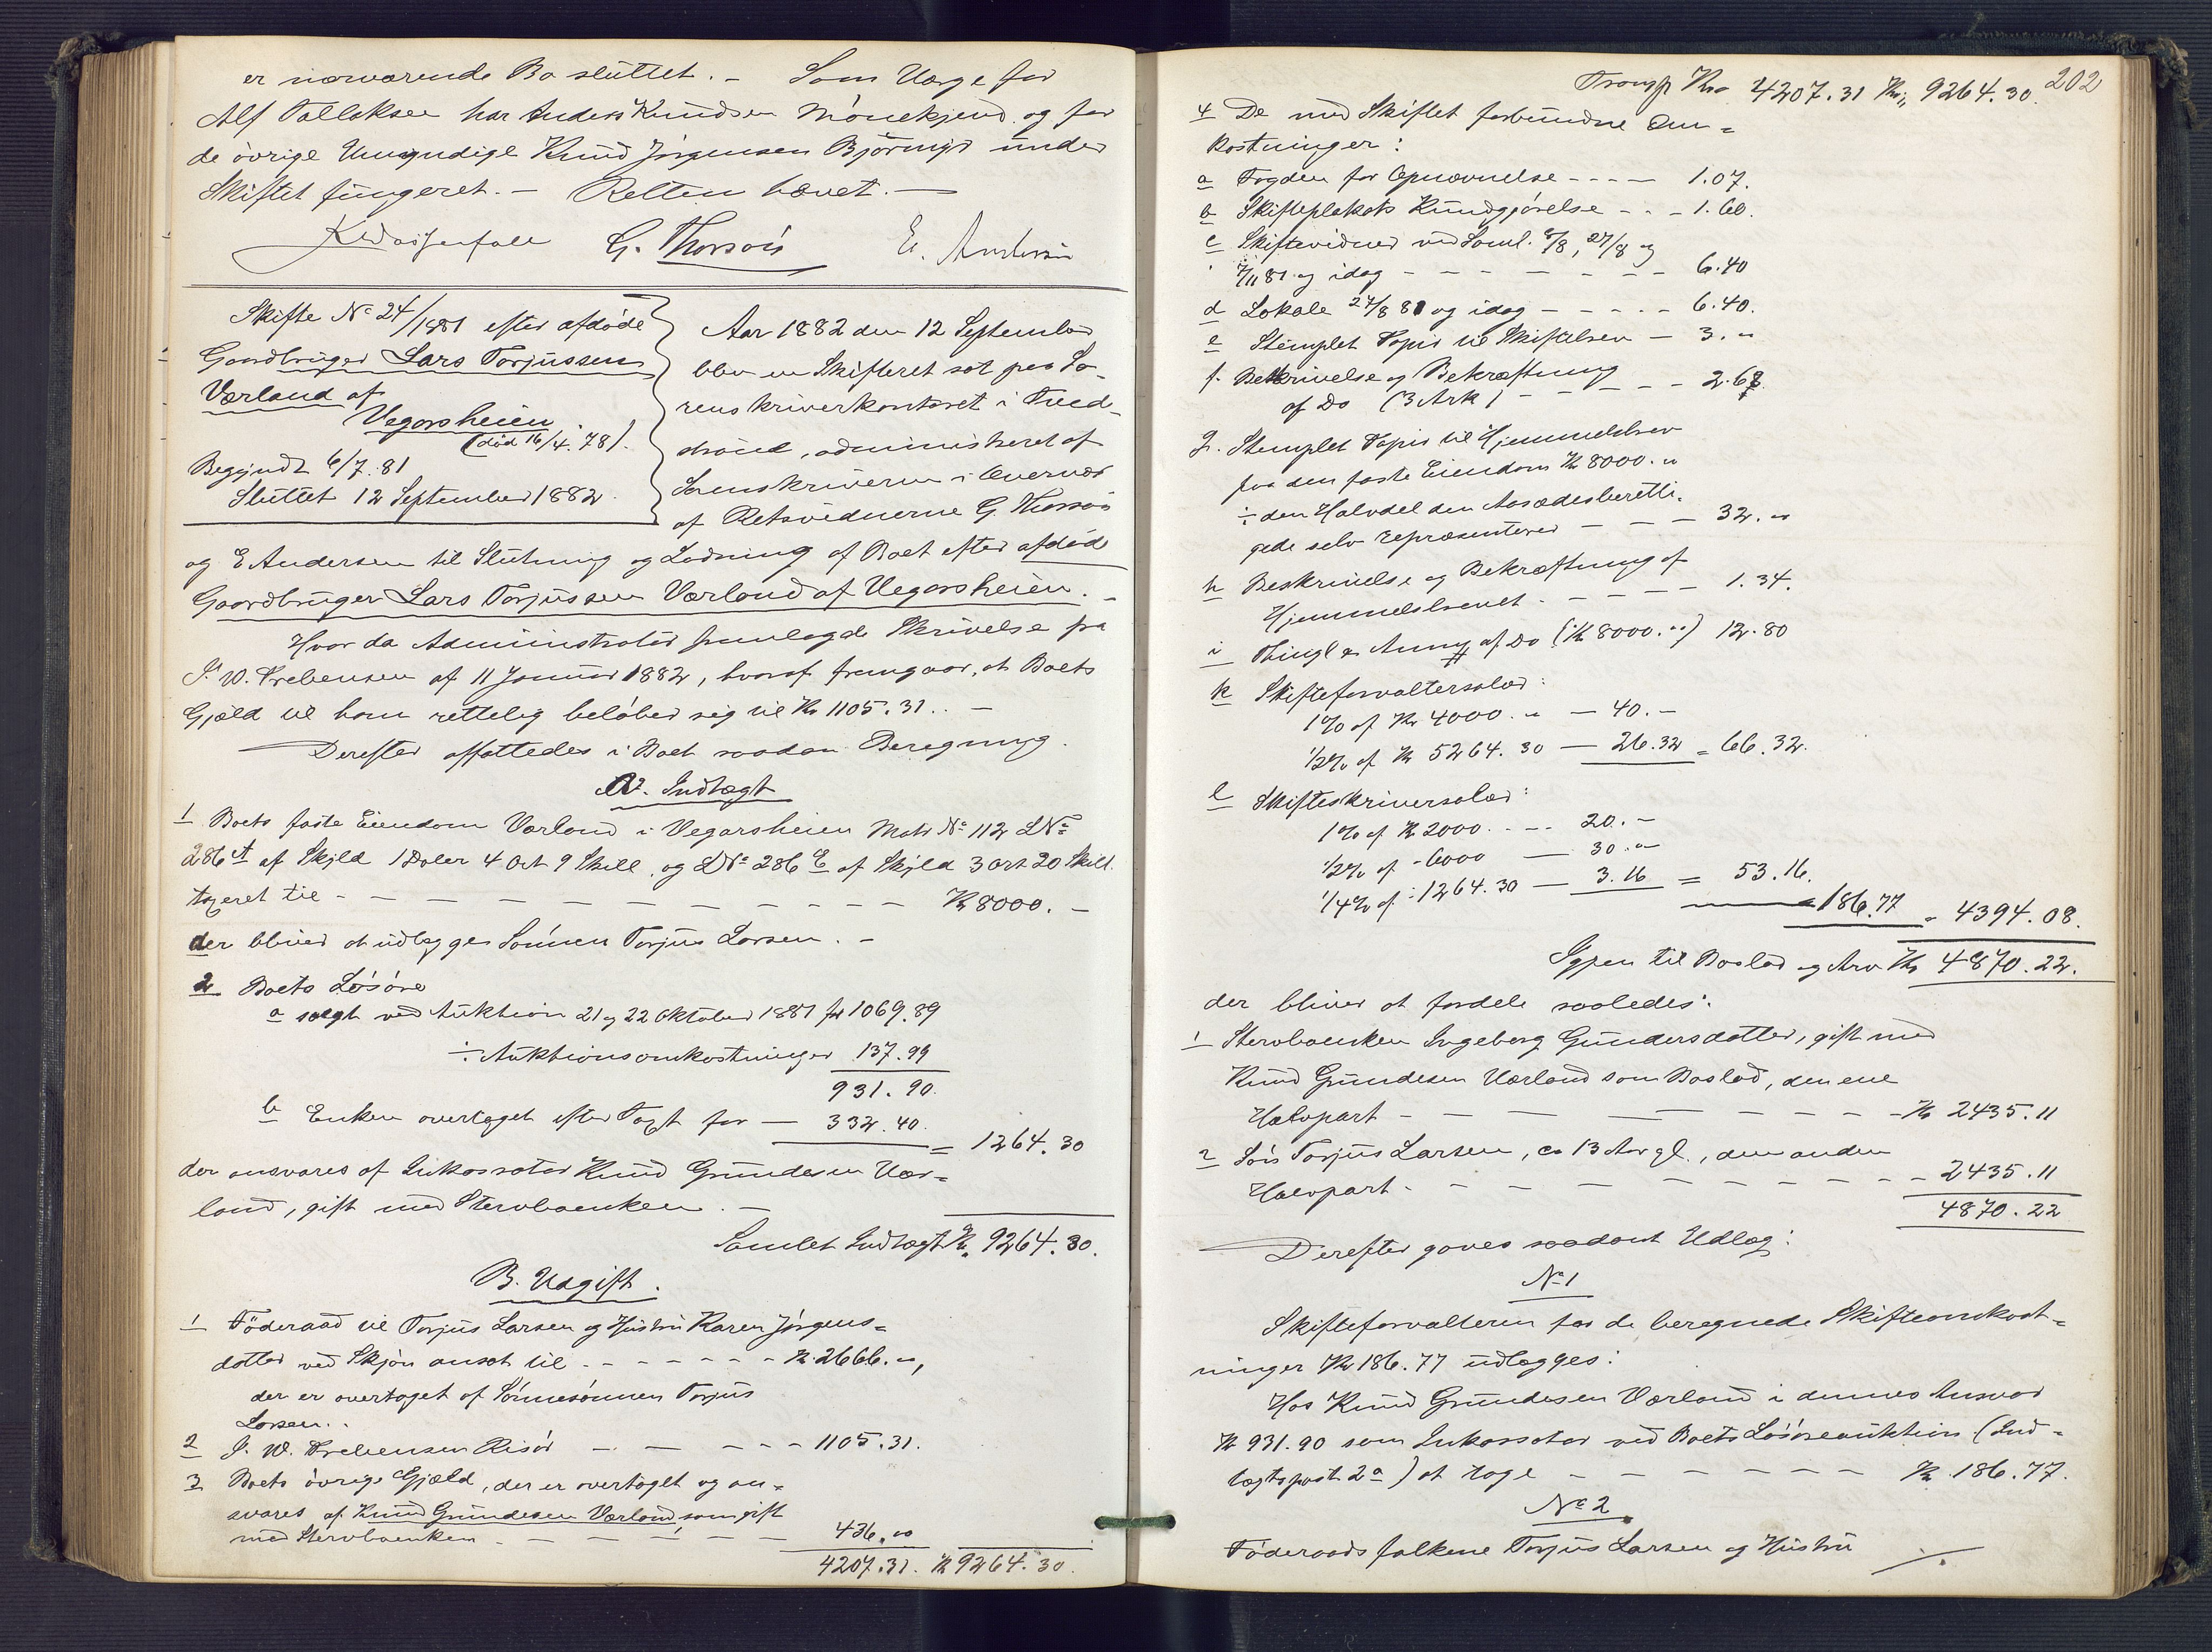 er nærværende Bo sluttet. – Som Værge for
Alf Tallaksen har Anders Knudsen Mönekjend og for
de övrige Umyndige Knud Jörgensen under
Skiftet fungeret. – Retten hævet. –
G. Thorsön E. Andersen
Skifte No 24/1881 efter afdöde
Gaardbruger Lars Torjussen
Værland af
Vegarsheien
(död 16/4. 78).
Begyndt 6/7. 81
Sluttet 12 September 1882.
Aar 1882 den 12 September
blev en Skifteret sat paa So-
renskriverkontoret i Tved-
strand, administreret af
Sorenskriveren i Overvær
af Retsvidnerne G. Thorsön
og E Andersen til Slutning og Lodning af Boet efter afdöde
Gaardbruger Lars Torjussen Værland af Vegarsheien. –
Hvor da Administrator fremlagde Skrivelse fra
J. W. Prebensen af 11 Januar 1882, hvoraf fremgaar, at Boets
Gjæld til ham rettelig belöber sig til Kr 1105.31.. –
Derefter affattedes i Boet saadan Beregning.
A. Indtægt
1 Boets faste Eiendom Værland i Vegarsheien Matr No 112 LNo
286 a af Skyld 1 Daler 4 Ort 9 Skill. og LNo 286 c af Skyld 3 Ort 20 Skill.
taxeret til – – – – – – – – – – Kr 8000. –
der bliver at udlægges Sönnen Torjus Larsen. –
2 Boets Lösöre
a solgt ved Auktion 21 og 22 Oktober 1881 for 1069.89
÷ Auktionsomkostninger 137.99
931.90.
b Enken overtaget efter Taxt for – 332.40.
= 1264.30
der ansvares af Inkassator Knud Gundersen Vær=
land, gift med Stervboenken. –
Samlet Indtægt Kr. 9264.30.
B. Udgift.
1 Föderaad til Torjus Larsen og Hustru Karen Jörgens=
datter ved Skjön ansat til – – – – – – Kr. 2666. „,
der er overtaget af Sönnesönnen Torjus
Larsen..
2 J. W. Prebensen Risör – – – – – 1105.31.
3 Boets övrige Gjæld, der er overtaget og an=
svares af Knud Gundersen Værland, som gift
med Stervboenken – – – – – 436. „
4207.31. Kr 9264.30.
202
Transp Kr 4207.31 Kr. 9264.30.
4 De med Skiftet forbundne Om=
kostninger:
a Fogden for Opnævnelse – – – – 1.07.
b Skifteplakats Kundgjörelse – – – 1.60.
c Skiftevidner ved Saml. 27/8 og
og idag – – – – – – – 6.40
d Lokale 27/8 81 og idag – – – – – 6.40.
e Stemplet Papir til Skiftelsen – 3. „
f. Beskrivelse og Bekræftning
af Do (3 Ark) – – – – 2.68
g. Stemplet Papir til Hjemmelsbrev
paa den faste Eiendom Kr 8000. „
÷ den Halvdel den Aasædesberetti.
gede selv repræsenterer – – – 32. „
h Beskrivelse og Bekræftning af
Hjemmelsbrevet – – – – – 1.34.
i Thingl & Anm. af Do (Kr 8000. „) 12.80
k Skifteforvaltersalær:
1% af Kr 4000. „ – 40. –
1/2% af Kr 5264.30 – 26.32 = 66.32.
l Skifteskriversalær:
1% af Kr 2000 . . – . 20. –
1/2% af - 6000 – 30. „
1/4% af - 1264.30 – 3.16 = 53.16.
186.77 = 4394.08.
Igjen til Boslod og Arv Kr 4870.22.
der bliver at fordele saaledes:
1 Stervboenken Ingeborg Gundersdatter, gift med
Knud Gundersen Værland som Boslod, den ene
Halvpart – – – – – – – – Kr 2435.11
2 Sön Torjus Larsen, ca 13 Aar gl., den anden
Halvpart – – – – – – – – – 2435.11
4870.22
Derefter gaves saadant Udlæg:
No 1
Skifteforvalteren for de beregnede Skifteomkost=
ninger Kr 186.77 udlægges:
Hos Knud Gundersen Værland i dennes Ansvar
Kr 931.90 som Inkassator ved Boets Lösöreauktion (Ind=
tægtspost 2 a) at tage – – – – – – Kr. 186.77.
No 2
Föderaadsfolkene Torjus Larsen og Hustru ./.